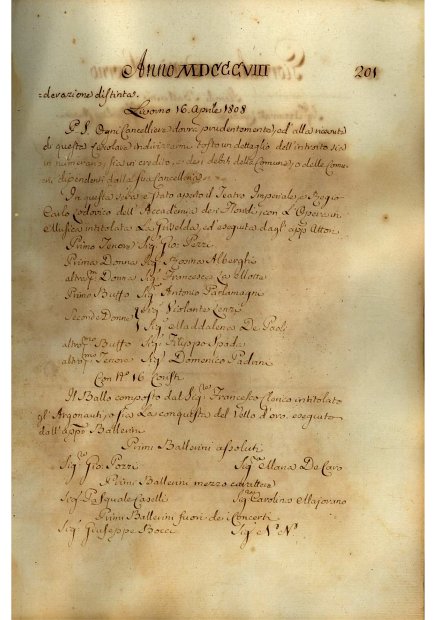 Anno MDCCCVIII 201
=devazione distinta.
Livorno 16. Aprile 1808
P. S. Ogni Cancelliere dovrà prudentemente, ed alla ricevuta
di questa Circolare indirizzarmi tosto un dettaglio dell'introito sia
in numerario, sia in credito, e dei debiti delle Comune, o delle Comu
ni dipendenti dalla sua Cancelleria
In questa sera è stato aperto il Teatro Imperiale, e Regio
Carlo Lodovico dell'Accademia dei Floridi, con L'Opera in
Musica intitolata La Griselda, ed eseguita dagl' app.i Attori
Primo Tenore Sig.r Gio:
Prima Donna Sig.ra Rosina Alberghi
altra Donna Sig.ra Francesca
Primo Buffo Sig.r Antonio Parlamagni
Seconde Donne Sig.ra Violante
Sig.ra Maddalena De Paoli
altro Buffo Sig.r Filippo Spada
altro Tenore Sig.r Domenico
Con N.o 16 Coristi
Il Ballo composto dal Sig.r Francesco Clerico intitolato
gl'Argonauti, o sia La conquista del Vello d'oro, eseguito
dall' app.i Ballerini
Primi Ballerini assoluti
Sig.r Gio: Sig.ra Maria De Caro
Primi Ballerini mezzo carattere
Sig.r Pasquale Caselli Sig.ra Carolina Majorano
Primi Ballerini fuori dei Concerti
Sig.r Giuseppe Bocci Sig.ra N. N.